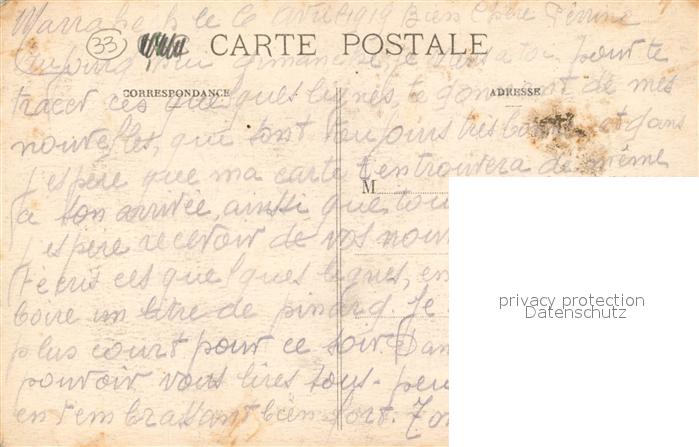 Marrakech le 6 Avril 1919 Bien Chère Perrine
33 CARTE POSTALE
Aujourd'hui dimanche, je viens à toi pour te
CORRESPONDANCE ADRESSE
tracer ces quelques lignes, te donnant de mes
nouvelles, qui sont toujours très bonnes et dans
j'espère que ma carte t'en trouvera de même
M
a son arrivée, ainsi que tou
j'espère recevoir de vos nouv
t'écris ces quelques lignes, en
privacy protection
Datenschutz
boire un litre de pinard. Je
plus court pour ce soir. Dan
pouvoir vous lires tous. peu
en t'embrassant bien fort. Ton